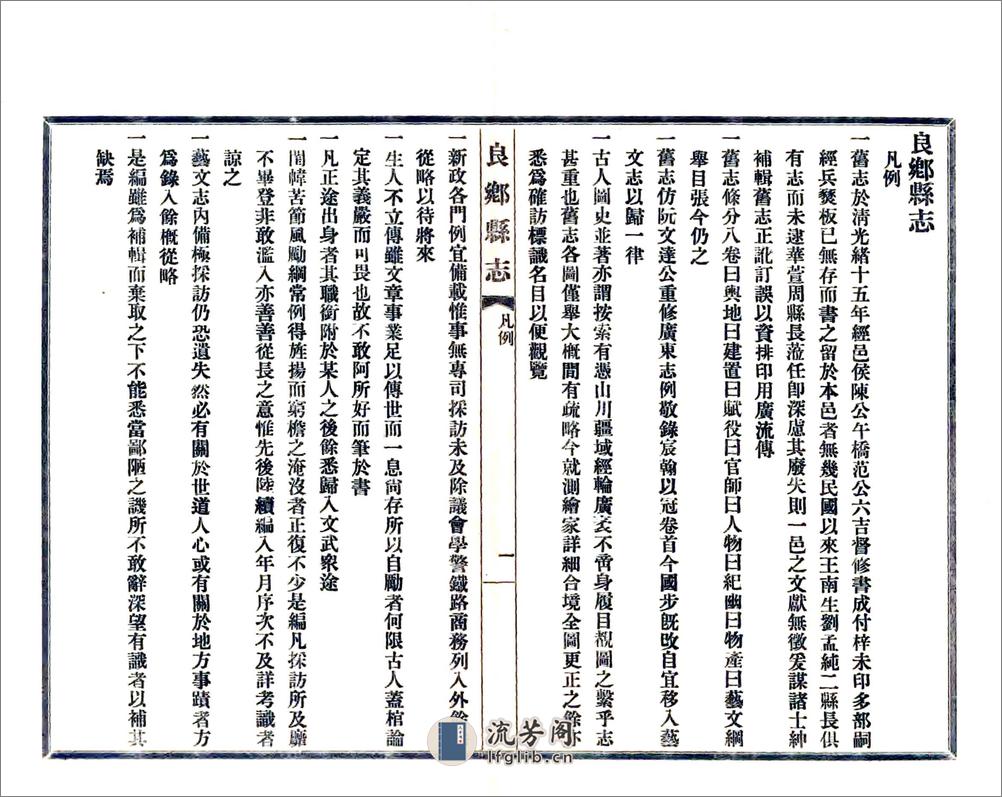 良鄉縣志
凡例
一舊志於清光緒十五年經邑侯陳公午橋范公六吉督修書成付梓未印多部嗣
經兵燹板已無存而書之留於本邑者無幾民國以來王南生劉孟純二縣長俱
有志而未逮華萱周縣長蒞任卽深慮其廢失則一邑之文獻無徵爰謀諸士紳
補輯舊志正訛訂誤以資排印用廣流傳
一舊志條分八卷曰輿地曰建置曰賦役曰官師曰人物曰紀幽曰物產曰藝文綱
舉目張今仍之
一舊志仿阮文達公重修廣東志例敬錄宸翰以冠卷首今國步旣改自宜移入藝
文志以歸一律
一古人圖史並著亦謂按索有憑山川疆域經輪廣袤不啻身履目覩圖之繫乎志
甚重也舊志各圖僅舉大概間有疏略今就測繪家詳細合境全圖更正之餘亦
悉爲確訪標識名目以便觀覽
良鄉縣志
凡例
一
一新政各門例宜備載惟事無專司採訪未及除議會學警鐵路商務列入外餘
從略以待將來
一生人不立傳雖文章事業足以傳世而一息尙存所以自勵者何限古人蓋棺論
定其義嚴而可畏也故不敢阿所好而筆於書
一凡正途出身者其職銜附於某人之後餘悉歸入文武衆途
一閨幃苦節風勵綱常例得旌揚而窮檐之淹沒者正復不少是編凡採訪所及靡
不畢登非敢濫入亦善善從長之意惟先後陸續編入年月序次不及詳考識者
諒之
一藝文志內備極採訪仍恐遺失然必有關於世道人心或有關於地方事蹟者方
爲錄入餘概從略
一是編雖爲補輯而棄取之下不能悉當鄙陋之譏所不敢辭深望有識者以補其
缺焉
流芳阁
lfglib.cn